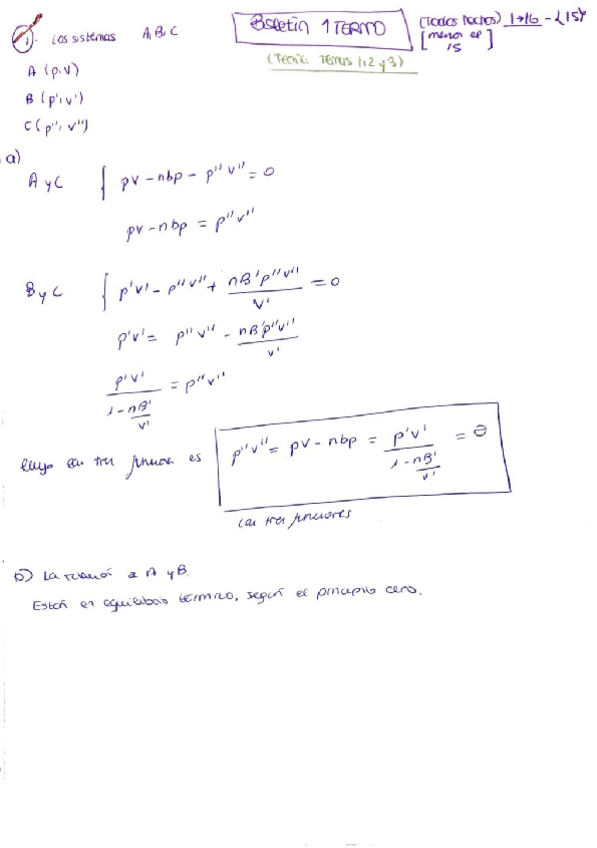 1. Los sistemas A, B, C
Boletín 1 TERMO
(Todos hechos) 1→16 - {15}
[menos el 15]
(Teoría: Temas 1,2 y 3)
A (p, v)
B (p', v')
C (p'', v'')
a)
A y C { pv - nbp - p''v'' = 0
pv - nbp = p''v''
B y C { p'v' - p''v'' + nB'p''v''/v' = 0
p'v' = p''v'' - nB'p''v''/v'
p'v'/(1 - nB'/v') = p''v''
luego las tres son es p''v'' = pv - nbp = p'v'/(1 - nB'/v') = θ
las tres funciones
b) La relación A y B.
Están en equilibrio térmico, según el principio cero.